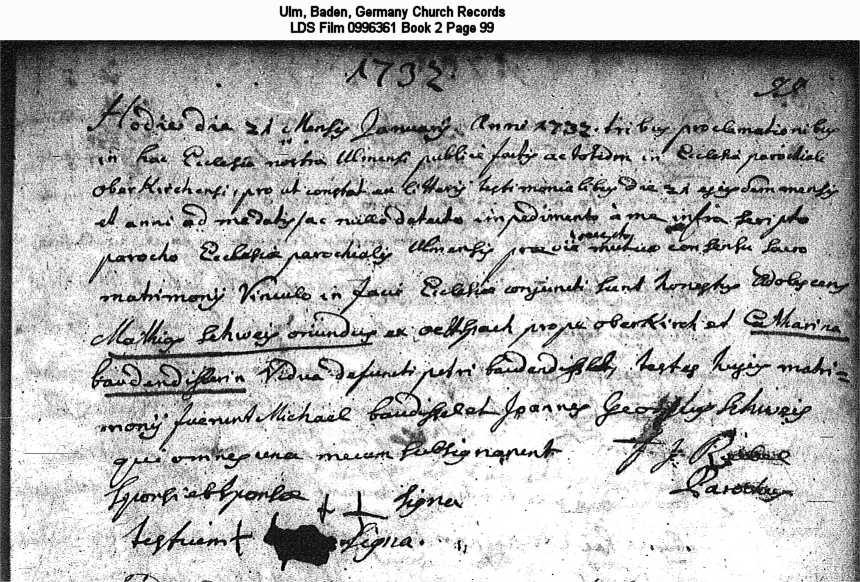 Ulm, Baden, Germany Church Records
LDS Film 0996361 Book 2 Page 99
1732.
99
Hodie die 21 Mensis Januarij Anni 1732. tribus proclamationibus
in hac Ecclesia nostra Ulmensi publice factis ac totidem in Ecclesia parochiali
oberKirchensi, pro ut constat ex litteris testimonialibus die 21 ejusdem mensis
et anni ad me datis, ac nullo detecto impedimento à me infra scripto
parocho Ecclesiæ parochialis Ulmensis prævie mutuo consensu sacro
matrimonij Vinculo in facie Ecclesiæ conjuncti sunt honestus Adolescens
Mathias Schweis oriundus ex prope oberKirch et Catharina
baudendistlerin Vidua defuncti petri testes hujus matri=
monij fuerunt Michael et Joannes Georgius Schweis
qui omnes una mecum subsignarunt
F J
Parochus
Sponsi et Sponsæ + + signa
testium + signa.